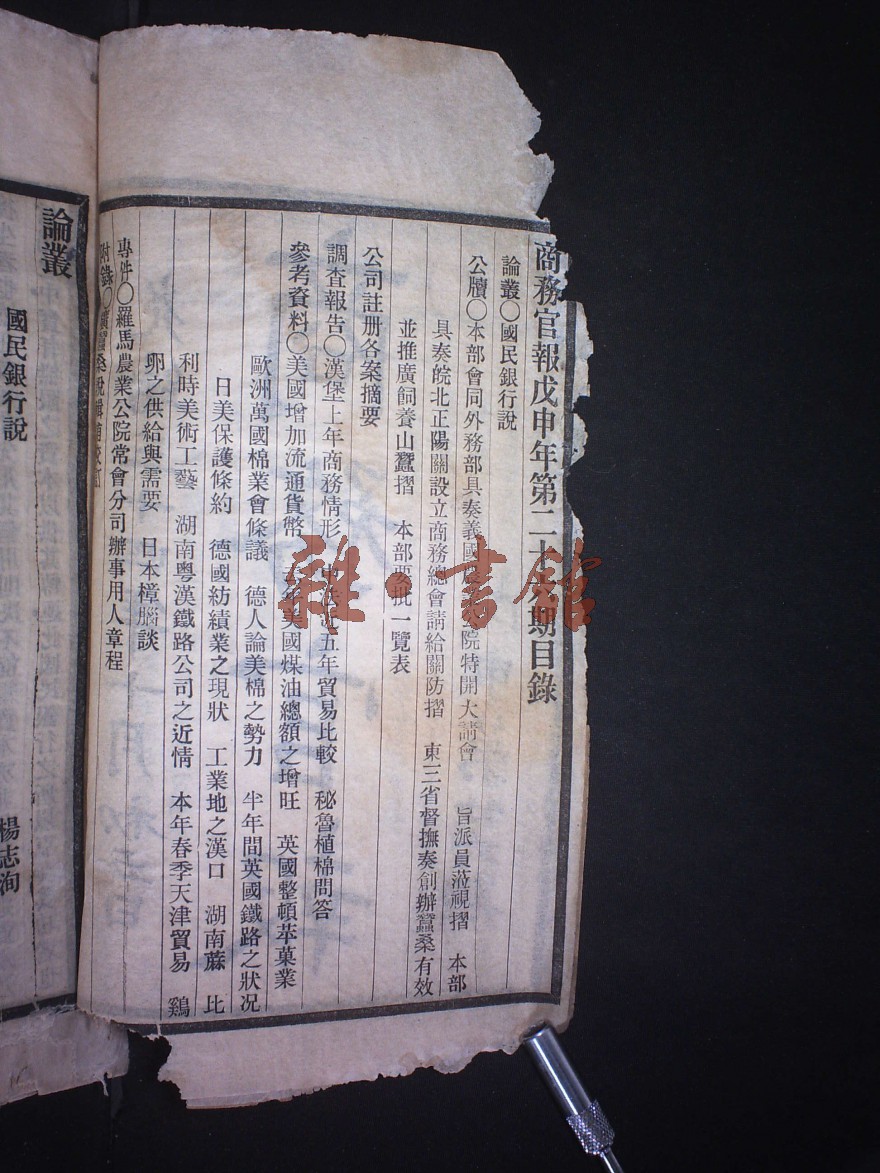 商務官報戊申年第二十期目錄
論叢〇國民銀行說
公牘〇本部會同外務部具奏義國農院特開大請會 旨派員蒞視摺 本部
具奏皖北正陽關設立商務總會請給關防摺 東三省督撫奏創辦蠶桑有效
並推廣飼養山蠶摺 本部要批一覽表
公司註册各案摘要
調查報告〇漢堡上年商務情形 五年貿易比較 秘魯植棉問答
參考資料〇美國增加流通貨幣 年美國煤油總額之增旺 英國整頓苹菓業
歐洲萬國棉業會條議 德人論美棉之勢力 半年間英國鐵路之狀况
日美保護條約 德國紡績業之現狀 工業地之漢口 湖南蔴 比
利時美術工藝 湖南粵漢鐵路公司之近情 本年春季天津貿易 鷄
卵之供給與需要 日本樟腦談
專件〇羅馬農業公院常會分司辦事用人章程
附錄〇桑說輯補
論叢
國民銀行說
楊志洵
雜·書館